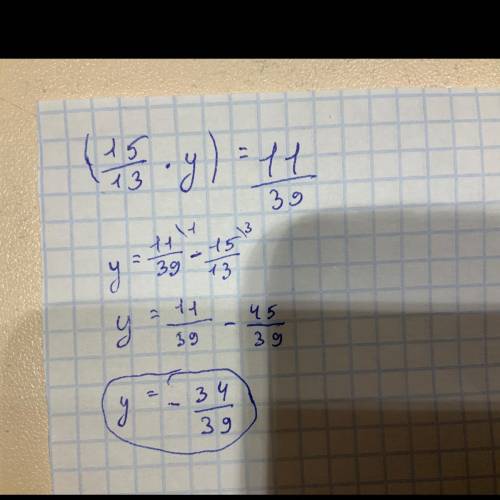 (15/13 · y) = 11/39
y = 11/39 \1 - 15/13 \3
y = 11/39 - 45/39
y = - 34/39